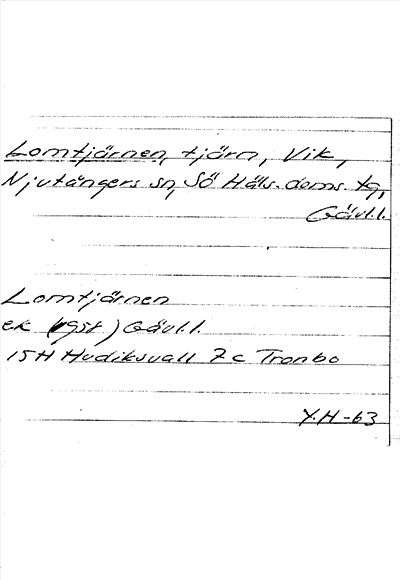 Lomtjärnen, tjärn, Vik,
Njutångers sn, Sö Häls. doms. tg,
Gävl.l.
Lomtjärnen
ek (gst) Gävl.l.
15H Hudiksvall 7c Tronbo
Y.H-63